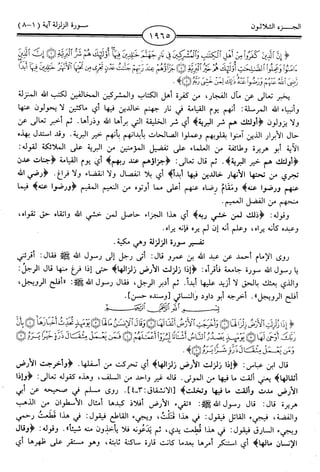 الجزء الثلاثون
١٩٦٥
سورة الزلزلة آية (١-٨)
﴿إِنَّ الَّذِينَ كَفَرُوا مِنْ أَهْلِ الْكِتَابِ وَالْمُشْرِكِينَ فِي نَارِ جَهَنَّمَ خَالِدِينَ فِيهَا أُولَئِكَ هُمْ شَرُّ الْبَرِيَّةِ ۞ إِنَّ الَّذِينَ
آمَنُوا وَعَمِلُوا الصَّالِحَاتِ أُولَئِكَ هُمْ خَيْرُ الْبَرِيَّةِ ۞ جَزَاؤُهُمْ عِنْدَ رَبِّهِمْ جَنَّاتُ عَدْنٍ تَجْرِي مِنْ تَحْتِهَا الْأَنْهَارُ خَالِدِينَ فِيهَا أَبَدًا
رَضِيَ اللَّهُ عَنْهُمْ وَرَضُوا عَنْهُ ذَلِكَ لِمَنْ خَشِيَ رَبَّهُ ۞﴾
يخبر تعالى عن مآل الفجار، من كفرة أهل الكتاب والمشركين المخالفين لكتب الله المنزلة
وأنبياء الله المرسلة: أنهم يوم القيامة في نار جهنم خالدين فيها أي ماكثين لا يحولون عنها
ولا يزولون ﴿أولئك هم شر البرية﴾ أي شر الخليقة التي برأها الله وذرأها. ثم أخبر تعالى عن
حال الأبرار الذين آمنوا بقلوبهم وعملوا الصالحات بأبدانهم بأنهم خير البرية. وقد استدل بهذه
الآية أبو هريرة وطائفة من العلماء على تفضيل المؤمنين من البرية على الملائكة لقوله:
﴿أولئك هم خير البرية﴾. ثم قال تعالى: ﴿جزاؤهم عند ربهم﴾ أي يوم القيامة ﴿جنات عدن
تجري من تحتها الأنهار خالدين فيها أبداً﴾ أي بلا انفصال ولا انقضاء ولا فراغ. ﴿رضي الله
عنهم ورضوا عنه﴾ ومقام رضاه عنهم أعلى مما أوتوه من النعيم المقيم ﴿ورضوا عنه﴾ فيما
منحهم من الفضل العميم.
وقوله: ﴿ذلك لمن خشي ربه﴾ أي هذا الجزاء حاصل لمن خشي الله واتقاه حق تقواه،
وعبده كأنه يراه، وعلم أنه إن لم يره فإنه يراه.
تفسير سورة الزلزلة وهي مكية.
روى الإمام أحمد عن عبد الله بن عمرو قال: أتى رجل إلى رسول الله ﷺ فقال: أقرئني
يا رسول الله سورة جامعة فأقرأه: ﴿إذا زلزلت الأرض زلزالها﴾ حتى إذا فرغ منها قال الرجل:
والذي بعثك بالحق لا أزيد عليها أبداً. ثم أدبر الرجل، فقال رسول الله ﷺ: «أفلح الرويجل،
أفلح الرويجل». أخرجه أبو داود والنسائي [وسنده حسن].
بِسْمِ اللَّهِ الرَّحْمَنِ الرَّحِيمِ
﴿إِذَا زُلْزِلَتِ الْأَرْضُ زِلْزَالَهَا ۞ وَأَخْرَجَتِ الْأَرْضُ أَثْقَالَهَا ۞ وَقَالَ الْإِنْسَانُ مَا لَهَا ۞ يَوْمَئِذٍ تُحَدِّثُ أَخْبَارَهَا ۞ بِأَنَّ
رَبَّكَ أَوْحَى لَهَا ۞ يَوْمَئِذٍ يَصْدُرُ النَّاسُ أَشْتَاتًا لِيُرَوْا أَعْمَالَهُمْ ۞ فَمَنْ يَعْمَلْ مِثْقَالَ ذَرَّةٍ خَيْرًا يَرَهُ
۞ وَمَنْ يَعْمَلْ مِثْقَالَ ذَرَّةٍ شَرًّا يَرَهُ ۞﴾
قال ابن عباس: ﴿إذا زلزلت الأرض زلزالها﴾ أي تحركت من أسفلها. ﴿وأخرجت الأرض
أثقالها﴾ يعني ألقت ما فيها من الموتى. قاله غير واحد من السلف، وهذه كقوله تعالى: ﴿وإذا
الأرض مدت وألقت ما فيها وتخلت﴾ [الانشقاق: ٣-٤]. روى مسلم في صحيحه عن أبي
هريرة قال: قال رسول الله ﷺ: «تقيء الأرض أفلاذ كبدها أمثال الأسطوان من الذهب
والفضة، فيجيء القاتل فيقول: في هذا قتلتُ، ويجيء القاطع فيقول: في هذا قطعتُ رحمي
ويجيء السارق فيقول: في هذا قُطعت يدي، ثم يدعونه فلا يأخذون منه شيئاً». وقوله: ﴿وقال
الإنسان مالها﴾ أي استنكر أمرها بعدما كانت قارة ساكنة ثابتة، وهو مستقر على ظهرها أي